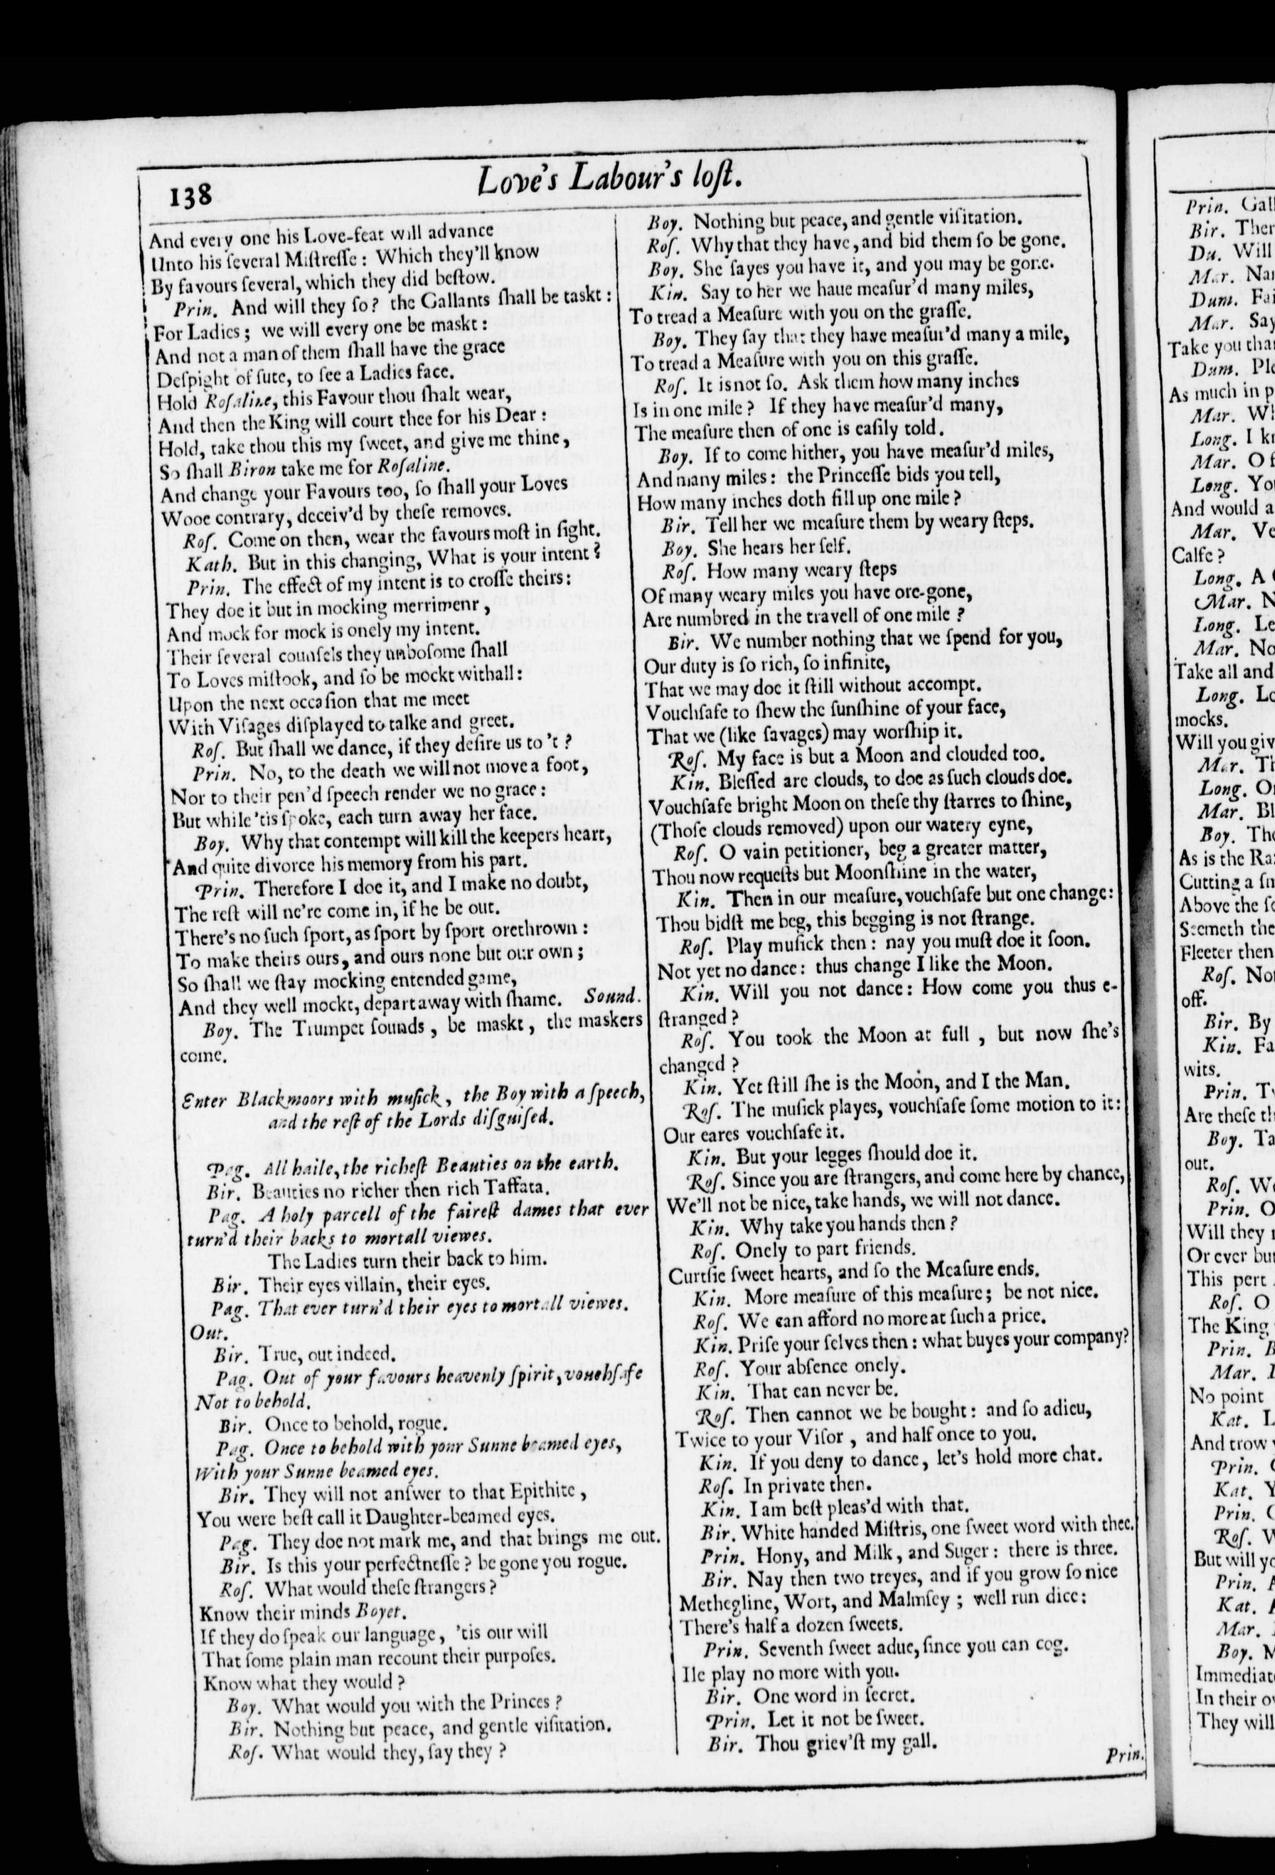 138
Love's Labour's lost.
And every one his Love-feat will advance
Unto his ſeveral Miſtreſſe: Which they'll know
By favours ſeveral, which they did beſtow.
Prin. And will they ſo? the Gallants ſhall be taskt:
For Ladies; we will every one be maskt:
And not a man of them ſhall have the grace
Deſpight of ſute, to ſee a Ladies face.
Hold Roſaline, this Favour thou ſhalt wear,
And then the King will court thee for his Dear:
Hold, take thou this my ſweet, and give me thine,
So ſhall Biron take me for Roſaline.
And change your Favours too, ſo ſhall your Loves
Wooe contrary, deceiv'd by theſe removes.
Roſ. Come on then, wear the favours moſt in ſight.
Kath. But in this changing, What is your intent?
Prin. The effect of my intent is to croſſe theirs:
They doe it but in mocking merrimenr,
And mock for mock is onely my intent.
Their ſeveral counſels they unboſome ſhall
To Loves miſtook, and ſo be mockt withall:
Upon the next occaſion that me meet
With Viſages diſplayed to talke and greet.
Roſ. But ſhall we dance, if they deſire us to 't?
Prin. No, to the death we will not move a foot,
Nor to their pen'd ſpeech render we no grace:
But while 'tis ſpoke, each turn away her face.
Boy. Why that contempt will kill the keepers heart,
And quite divorce his memory from his part.
Prin. Therefore I doe it, and I make no doubt,
The reſt will ne're come in, if he be out.
There's no ſuch ſport, as ſport by ſport orethrown:
To make theirs ours, and ours none but our own;
So ſhall we ſtay mocking entended game,
And they well mockt, depart away with ſhame. Sound.
Boy. The Trumpet ſounds, be maskt, the maskers
come.
Enter Blackmoors with muſick, the Boy with a ſpeech,
and the reſt of the Lords diſguiſed.
Pag. All haile, the richeſt Beauties on the earth.
Bir. Beauties no richer then rich Taffata.
Pag. A holy parcell of the faireſt dames that ever
turn'd their backs to mortall viewes.
The Ladies turn their back to him.
Bir. Their eyes villain, their eyes.
Pag. That ever turn'd their eyes to mortall viewes.
Out.
Bir. True, out indeed.
Pag. Out of your favours heavenly ſpirit, vouchſafe
Not to behold.
Bir. Once to behold, rogue.
Pag. Once to behold with your Sunne beamed eyes,
With your Sunne beamed eyes.
Bir. They will not anſwer to that Epithite,
You were beſt call it Daughter-beamed eyes.
Pag. They doe not mark me, and that brings me out.
Bir. Is this your perfectneſſe? be gone you rogue.
Roſ. What would theſe ſtrangers?
Know their minds Boyet.
If they do ſpeak our language, 'tis our will
That ſome plain man recount their purpoſes.
Know what they would?
Boy. What would you with the Princes?
Bir. Nothing but peace, and gentle viſitation.
Roſ. What would they, ſay they?
Boy. Nothing but peace, and gentle viſitation.
Roſ. Why that they have, and bid them ſo be gone.
Boy. She ſayes you have it, and you may be gone.
Kin. Say to her we haue meaſur'd many miles,
To tread a Meaſure with you on the graſſe.
Boy. They ſay that they have meaſur'd many a mile,
To tread a Meaſure with you on this graſſe.
Roſ. It is not ſo. Ask them how many inches
Is in one mile? If they have meaſur'd many,
The meaſure then of one is eaſily told.
Boy. If to come hither, you have meaſur'd miles,
And many miles: the Princeſſe bids you tell,
How many inches doth fill up one mile?
Bir. Tell her we meaſure them by weary ſteps.
Boy. She hears her ſelf.
Roſ. How many weary ſteps
Of many weary miles you have ore-gone,
Are numbred in the travell of one mile?
Bir. We number nothing that we ſpend for you,
Our duty is ſo rich, ſo infinite,
That we may doe it ſtill without accompt.
Vouchſafe to ſhew the ſunſhine of your face,
That we (like ſavages) may worſhip it.
Roſ. My face is but a Moon and clouded too.
Kin. Bleſſed are clouds, to doe as ſuch clouds doe.
Vouchſafe bright Moon on theſe thy ſtarres to ſhine,
(Thoſe clouds removed) upon our watery eyne,
Roſ. O vain petitioner, beg a greater matter,
Thou now requeſts but Moonſhine in the water,
Kin. Then in our meaſure, vouchſafe but one change:
Thou bidſt me beg, this begging is not ſtrange.
Roſ. Play muſick then: nay you muſt doe it ſoon.
Not yet no dance: thus change I like the Moon.
Kin. Will you not dance: How come you thus e-
ſtranged?
Roſ. You took the Moon at full, but now ſhe's
changed?
Kin. Yet ſtill ſhe is the Moon, and I the Man.
Roſ. The muſick playes, vouchſafe ſome motion to it:
Our eares vouchſafe it.
Kin. But your legges ſhould doe it.
Roſ. Since you are ſtrangers, and come here by chance,
We'll not be nice, take hands, we will not dance.
Kin. Why take you hands then?
Roſ. Onely to part friends.
Curtſie ſweet hearts, and ſo the Meaſure ends.
Kin. More meaſure of this meaſure; be not nice.
Roſ. We can afford no more at ſuch a price.
Kin. Priſe your ſelves then: what buyes your company?
Roſ. Your abſence onely.
Kin. That can never be.
Roſ. Then cannot we be bought: and ſo adieu,
Twice to your Viſor, and half once to you.
Kin. If you deny to dance, let's hold more chat.
Roſ. In private then.
Kin. I am beſt pleas'd with that.
Bir. White handed Miſtris, one ſweet word with thee.
Prin. Hony, and Milk, and Suger: there is three.
Bir. Nay then two treyes, and if you grow ſo nice
Methegline, Wort, and Malmſey; well run dice:
There's half a dozen ſweets.
Prin. Seventh ſweet adue, ſince you can cog.
Ile play no more with you.
Bir. One word in ſecret.
Prin. Let it not be ſweet.
Bir. Thou griev'ſt my gall.
Prin.
Prin.
Bir.
Du. Will
Mar.
Dum.
Mar. Say
Take you
Dum.
As much in
Mar.
Long. I
Mar. O
Long.
And would
Mar.
Calfe?
Long. A
Mar.
Long.
Mar.
Take all and
Long.
mocks.
Will you
Mar.
Long.
Mar.
Boy.
As is the
Cutting a
Above the
Seemeth
Fleeter then
Roſ.
off.
Bir. By
Kin.
wits.
Prin.
Are theſe
Boy.
out.
Roſ.
Prin. O
Will they
Or ever
This pert
Roſ. O
The King
Prin.
Mar.
No point
Kat.
And trow
Prin.
Kat.
Prin.
Roſ.
But will
Prin.
Kat.
Mar.
Boy.
In their
They will